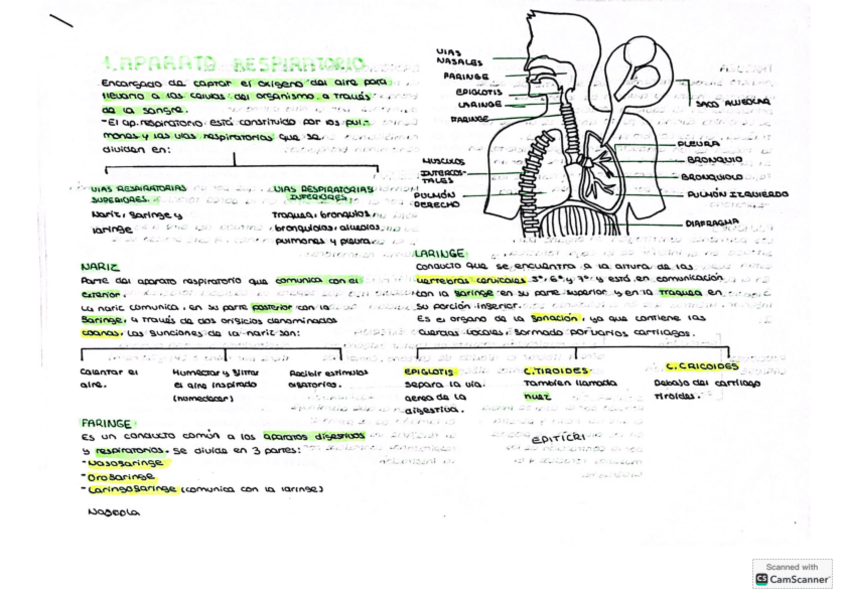 1. APARATO RESPIRATORIO
Encargado de captar el oxígeno del aire para
llevarlo a las células del organismo, a través
de la sangre.
- El ap. respiratorio está constituido por los pul-
mones y las vías respiratorias que se
dividen en:
VÍAS RESPIRATORIAS
SUPERIORES.
Nariz, faringe y
laringe
VÍAS RESPIRATORIAS
INFERIORES
Traquea, bronquios,
bronquiolos, alveolos,
pulmones y pleura.
VIAS
NASALES
FARINGE
EPIGLOTIS
LARINGE
FARINGE
MUSCULOS
INTERCOS-
TALES
PULMÓN
DERECHO
SACO ALVEOLAR
PLEURA
BRONQUIO
BRONQUIOLO
PULMÓN IZQUIERDO
DIAFRAGMA
NARIZ
Parte del aparato respiratorio que comunica con el
exterior.
La nariz comunica, en su parte posterior con la
faringe, a través de dos orificios denominados
coanas. Las funciones de la nariz son:
Calentar el
aire.
Humectar y filtrar
el aire inspirado
(humedecer)
Recibir estímulos
olfatorios.
FARINGE
Es un conducto común a los aparatos digestivos
y respiratorios. Se divide en 3 partes:
- Nasofaringe
- Orofaringe
- Laringofaringe (comunica con la laringe)
Nasoola
LARINGE
Conducto que se encuentra a la altura de las
vertebras cervicales 5ª, 6ª y 7ª y está en comunicación
con la faringe en su parte superior y en la traquea en
su porción inferior.
Es el órgano de la fonación, ya que contiene las
cuerdas vocales, formado por varios cartílagos.
EPIGLOTIS
separa la vía
aerea de la
digestiva.
C. TIROIDES
También llamada
nuez
C. CRICOIDES
Debajo del cartílago
tiroides.
EPITICRI
Scanned with
CS CamScanner